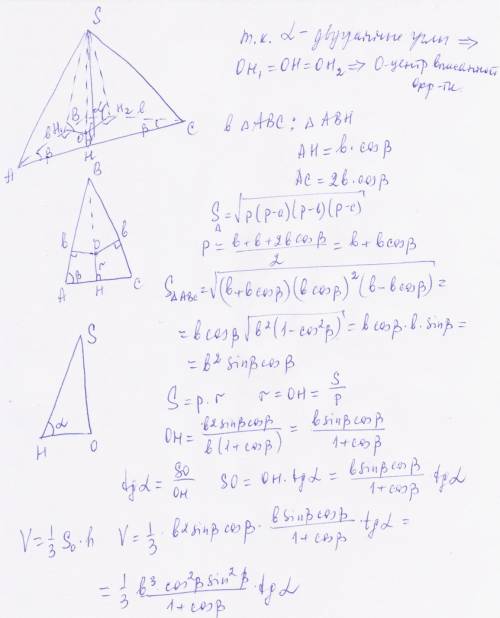 S
B
b
H₁
H₂
b
O
β
β
r
A
H
C
т.к. α - двугранные углы ⇒
OH₁ = OH = OH₂ ⇒ O-центр вписанной
окр-ти.
в △ABC: △ABH
AH = b·cosβ
AC = 2b·cosβ
S△ = √p(p-a)(p-b)(p-c)
P = (b+b+2bcosβ)/2 = b+bcosβ
S△ABC = √(b+bcosβ)(bcosβ)²(b-bcosβ) =
= bcosβ√b²(1-cos²β) = bcosβ·b·sinβ =
= b² sinβcosβ
B
b
b
O
r
β
A
H
C
S = p·r   r = OH = S/P
OH = b²sinβcosβ/b(1+cosβ) = bsinβcosβ/1+cosβ
S
α
H
O
tgα = SO/OH   SO = OH·tgα = bsinβcosβ/1+cosβ tgα
V = 1/3 S₀·h   V = 1/3 · b²sinβcosβ · bsinβcosβ/1+cosβ · tgα =
= 1/3 b³·cos²βsin²β/1+cosβ · tgα